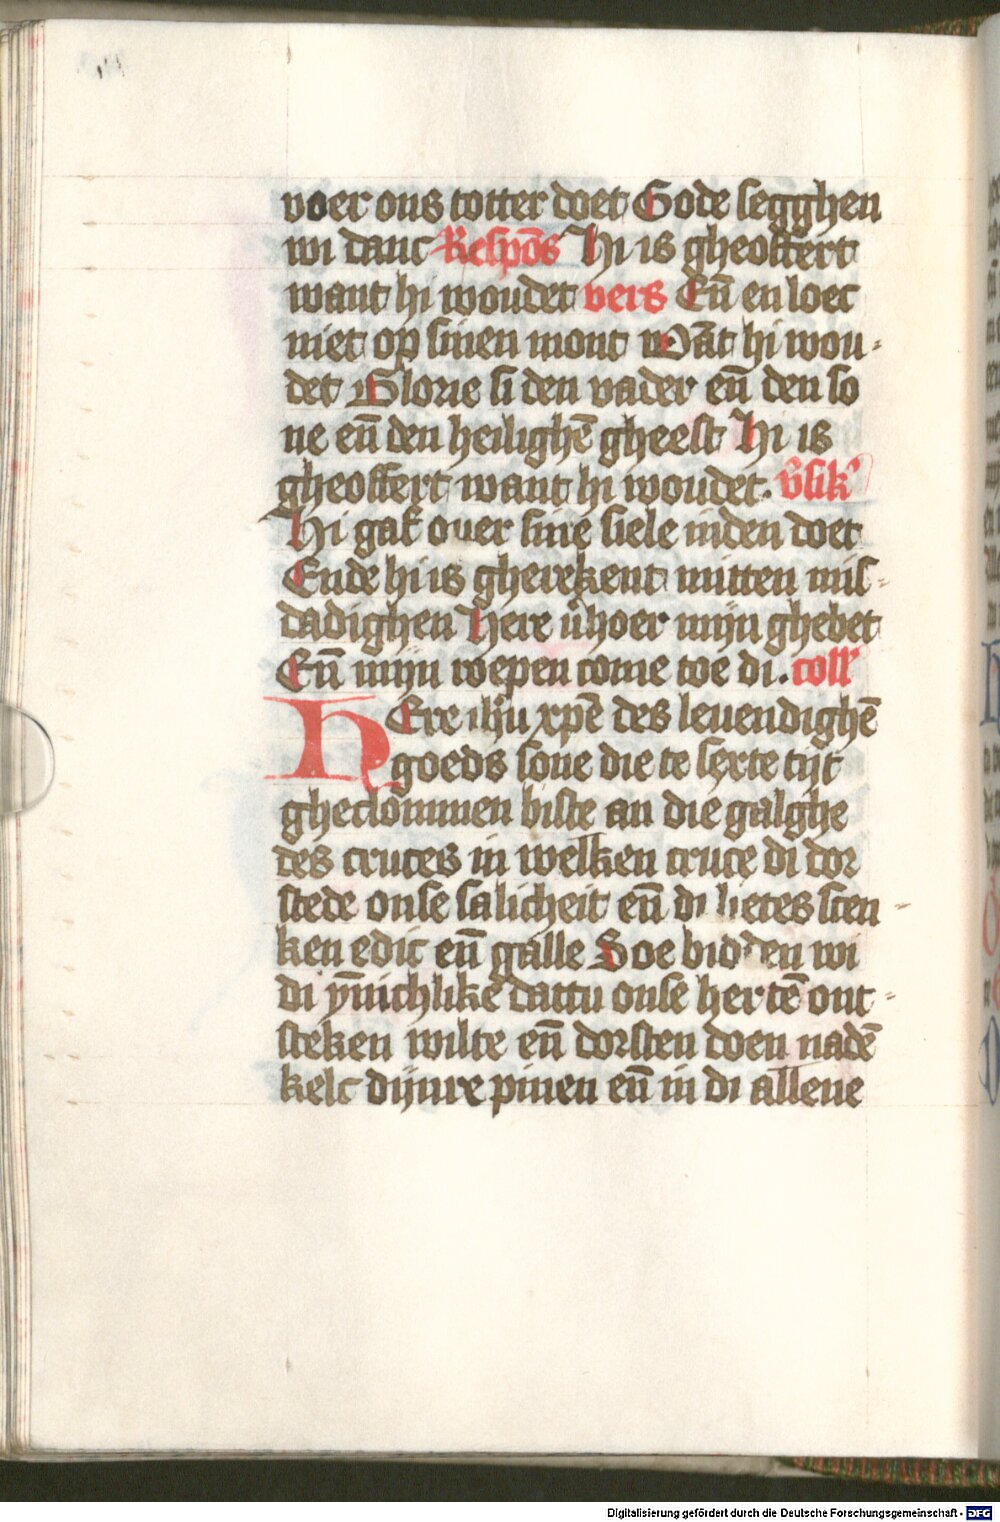 voer ons totter doet Gode segghen
wi danc Respōs Hi is gheoffert
want hi woudet vers En̄ en loec
niet op sinen mont Wāt hi wou-
det Glorie si den vader en̄ den so
ne en̄ den heilighē gheest Hi is
gheoffert want hi woudet. v̄sik
Hi gaf ouer sine siele inden doet
Ende hi is gherekent mitten mis-
dadighen Here v̄hoer mijn ghebet
En̄ mijn roepen come toe di. coll
HEre ih̄u xpē des leuendighē
goeds sone die te sexte tijt
gheclommen biste an die galghe
des cruces in welken cruce di dor
stede onse salicheit en̄ di lietes scen-
ken edic en̄ galle Soe bidden wi
di ȳnichlike dattu onse hertē ont-
steken wilte en̄ dorsten doen nadē
kelc dijnre pinen en̄ in di allene
Digitalisierung gefördert durch die Deutsche Forschungsgemeinschaft - DFG